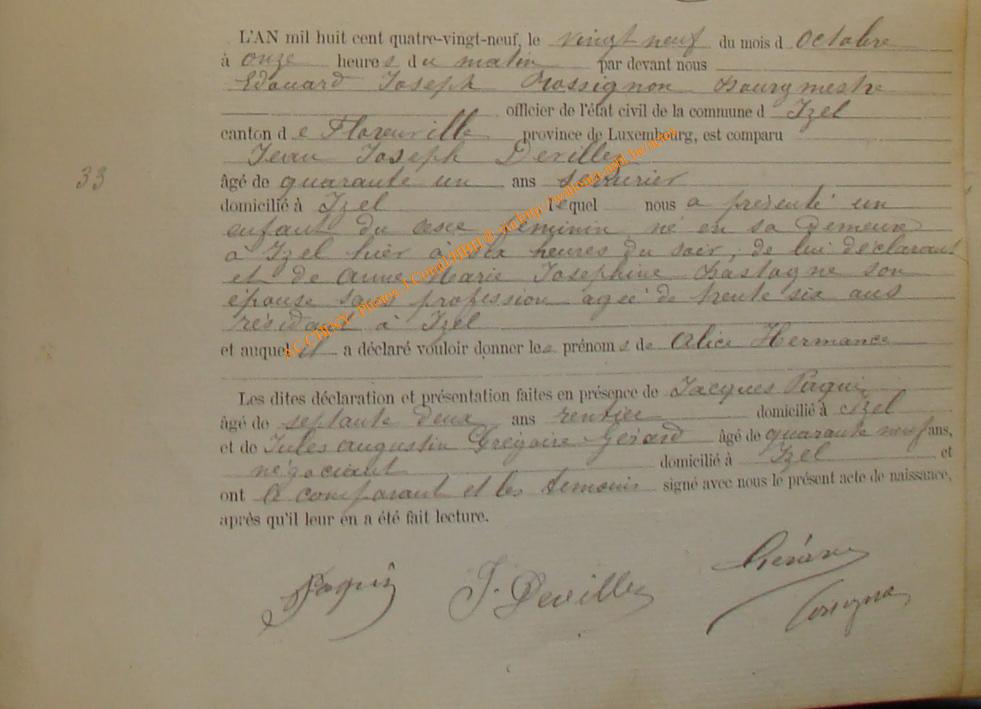 L'AN mil huit cent quatre-vingt-neuf, le vingt neuf du mois d Octobre
à onze heures du matin par devant nous
Edouard Joseph Rossignon Bourgmestre
officier de l'état civil de la commune d Izel
canton de Florenville province de Luxembourg, est comparu
Jean Joseph Deville
33
âgé de quarante un ans serrurier
domicilié à Izel lequel nous a présenté un
enfant du sexe féminin né en sa demeure
à Izel hier à heures du soir, de lui déclarant
et de Anne Marie Josephine Bastogne son
épouse sans profession agée de trente six ans
résidant à Izel
et auquel il a déclaré vouloir donner les prénoms de Alice Hermance
Les dites déclaration et présentation faites en présence de Jacques Paquin
âgé de septante deux ans rentier domicilié à Izel
et de Jules Augustin Grégoire Gérard âgé de quarante neuf ans,
négociant domicilié à Izel et
ont le comparant et les temoins signé avec nous le présent acte de naissance,
après qu'il leur en a été fait lecture.
Paquin J. Deville Gérard